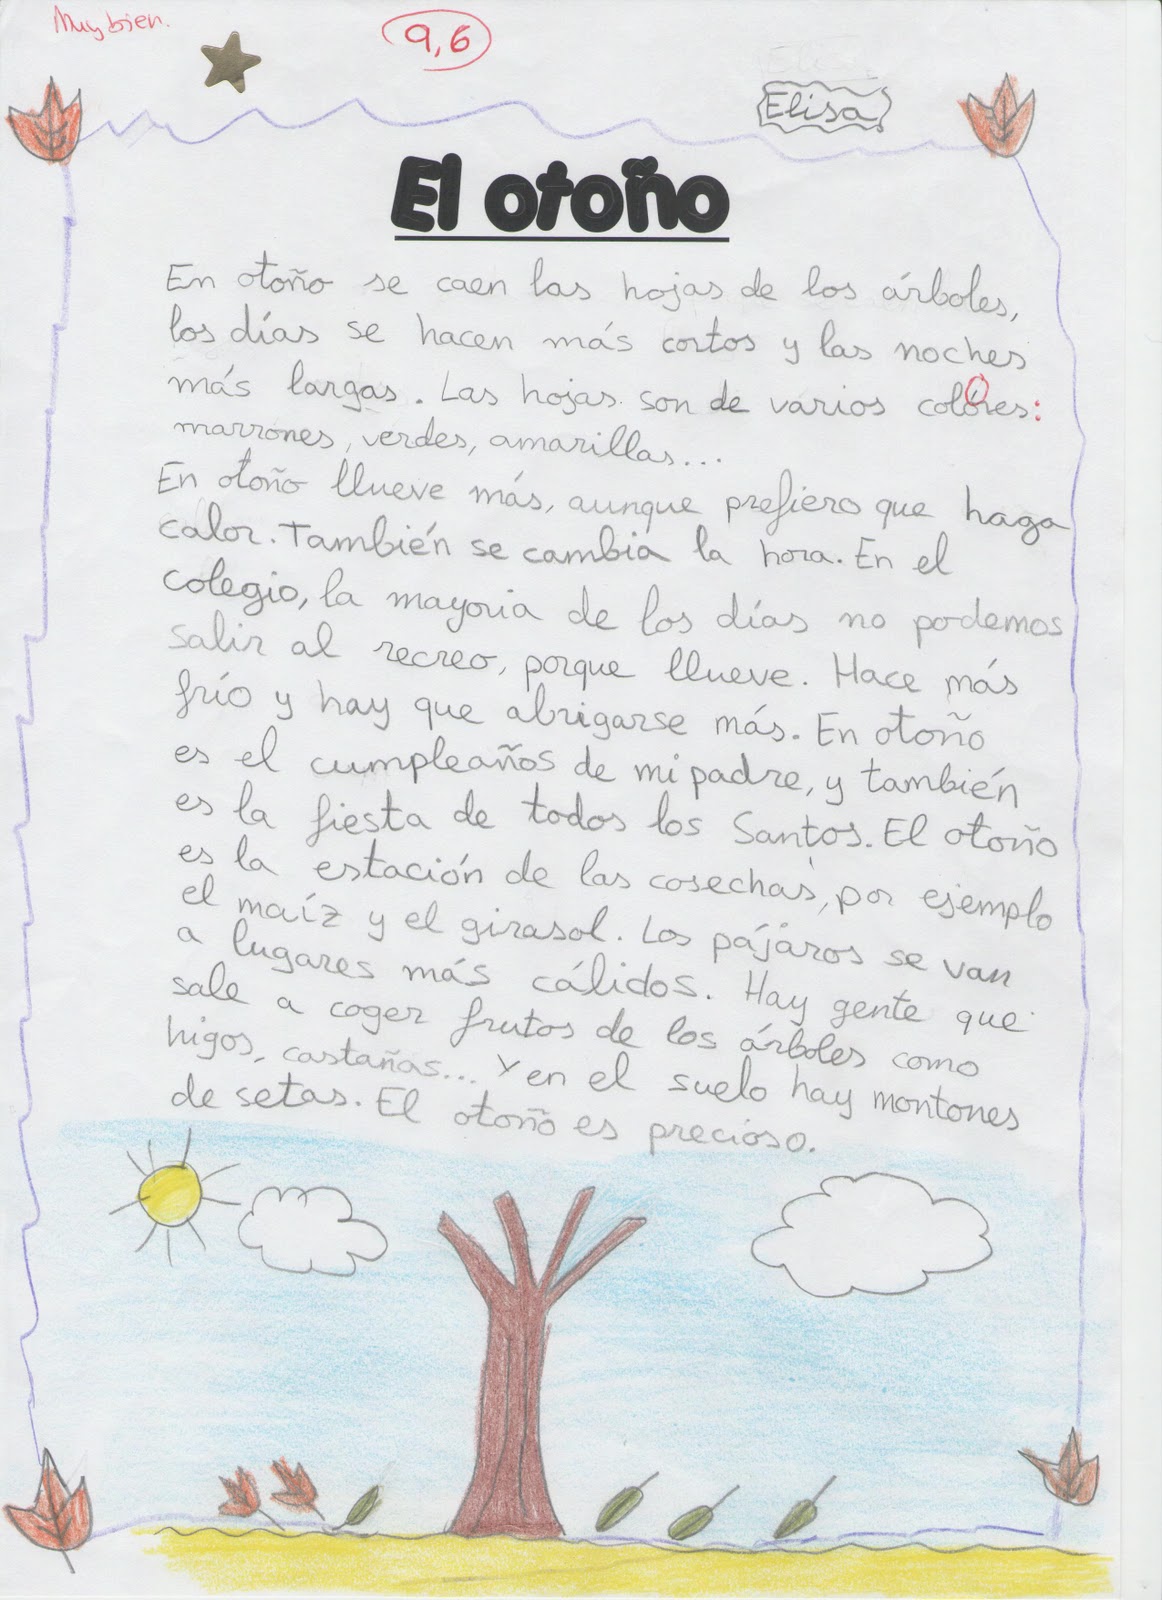 Muy bien.
9,6
Elisa
El otoño
En otoño se caen las hojas de los árboles,
los días se hacen más cortos y las noches
más largas. Las hojas son de varios colóres:
marrones, verdes, amarillas...
En otoño llueve más, aunque prefiero que haga
calor. También se cambia la hora. En el
colegio, la mayoria de los días no podemos
salir al recreo, porque llueve. Hace más
frío y hay que abrigarse más. En otoño
es el cumpleaños de mi padre, y también
es la fiesta de todos los Santos. El otoño
es la estación de las cosechas, por ejemplo
el maíz y el girasol. Los pájaros se van
a lugares más cálidos. Hay gente que
sale a coger frutos de los árboles como
higos, castañas... Y en el suelo hay montones
de setas. El otoño es precioso.